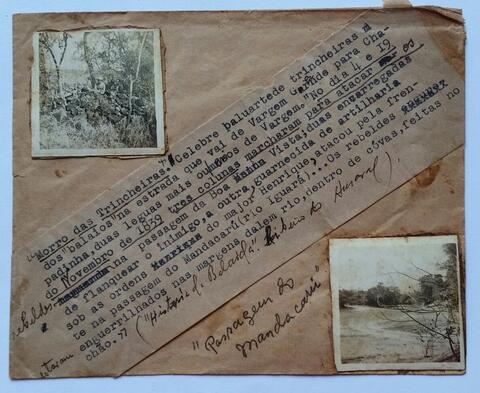 "Morro das Trincheiras. Celebre baluarte de trincheiras
dos balaios" na estrada que vai de Vargem Grande para Cha-
padinha, duas leguas mais ou menos de Vargem. "No dia 4 e 19
do Novembro de 1839 tres colunas marcharam para atacar os
rebeldes na passagem da Boa Vista; duas encarregadas
de flanquear o inimigo, a outra, guarnecida de artilharia
sob as ordens do major Henrique, atacou pela fren-
te na passagem do Mandacarú (rio Iguará)... Os rebeldes
estavam enguerrilhados nas margens dalem rio, dentro de cóvas, feitas no
chão."
("Historia d. Balaida". Ribeiro do Amaral).
"Passagem do
Mandacarú"